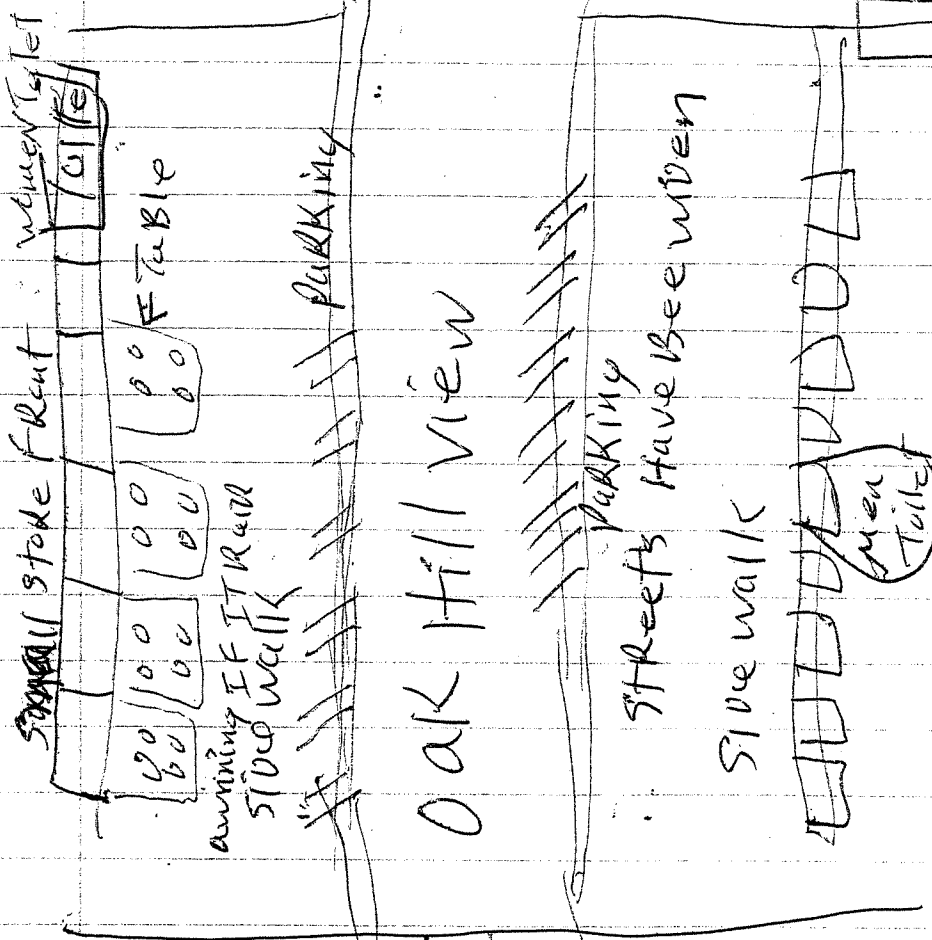 Women Tolet
Small Store FRont
Toile
F TaBle
awnning IF IT Rain
SIDe Walk
ParKing
Oak Hill View
ParKing
StReets Have Been wiDen
SIDe walk
Men
Toilet